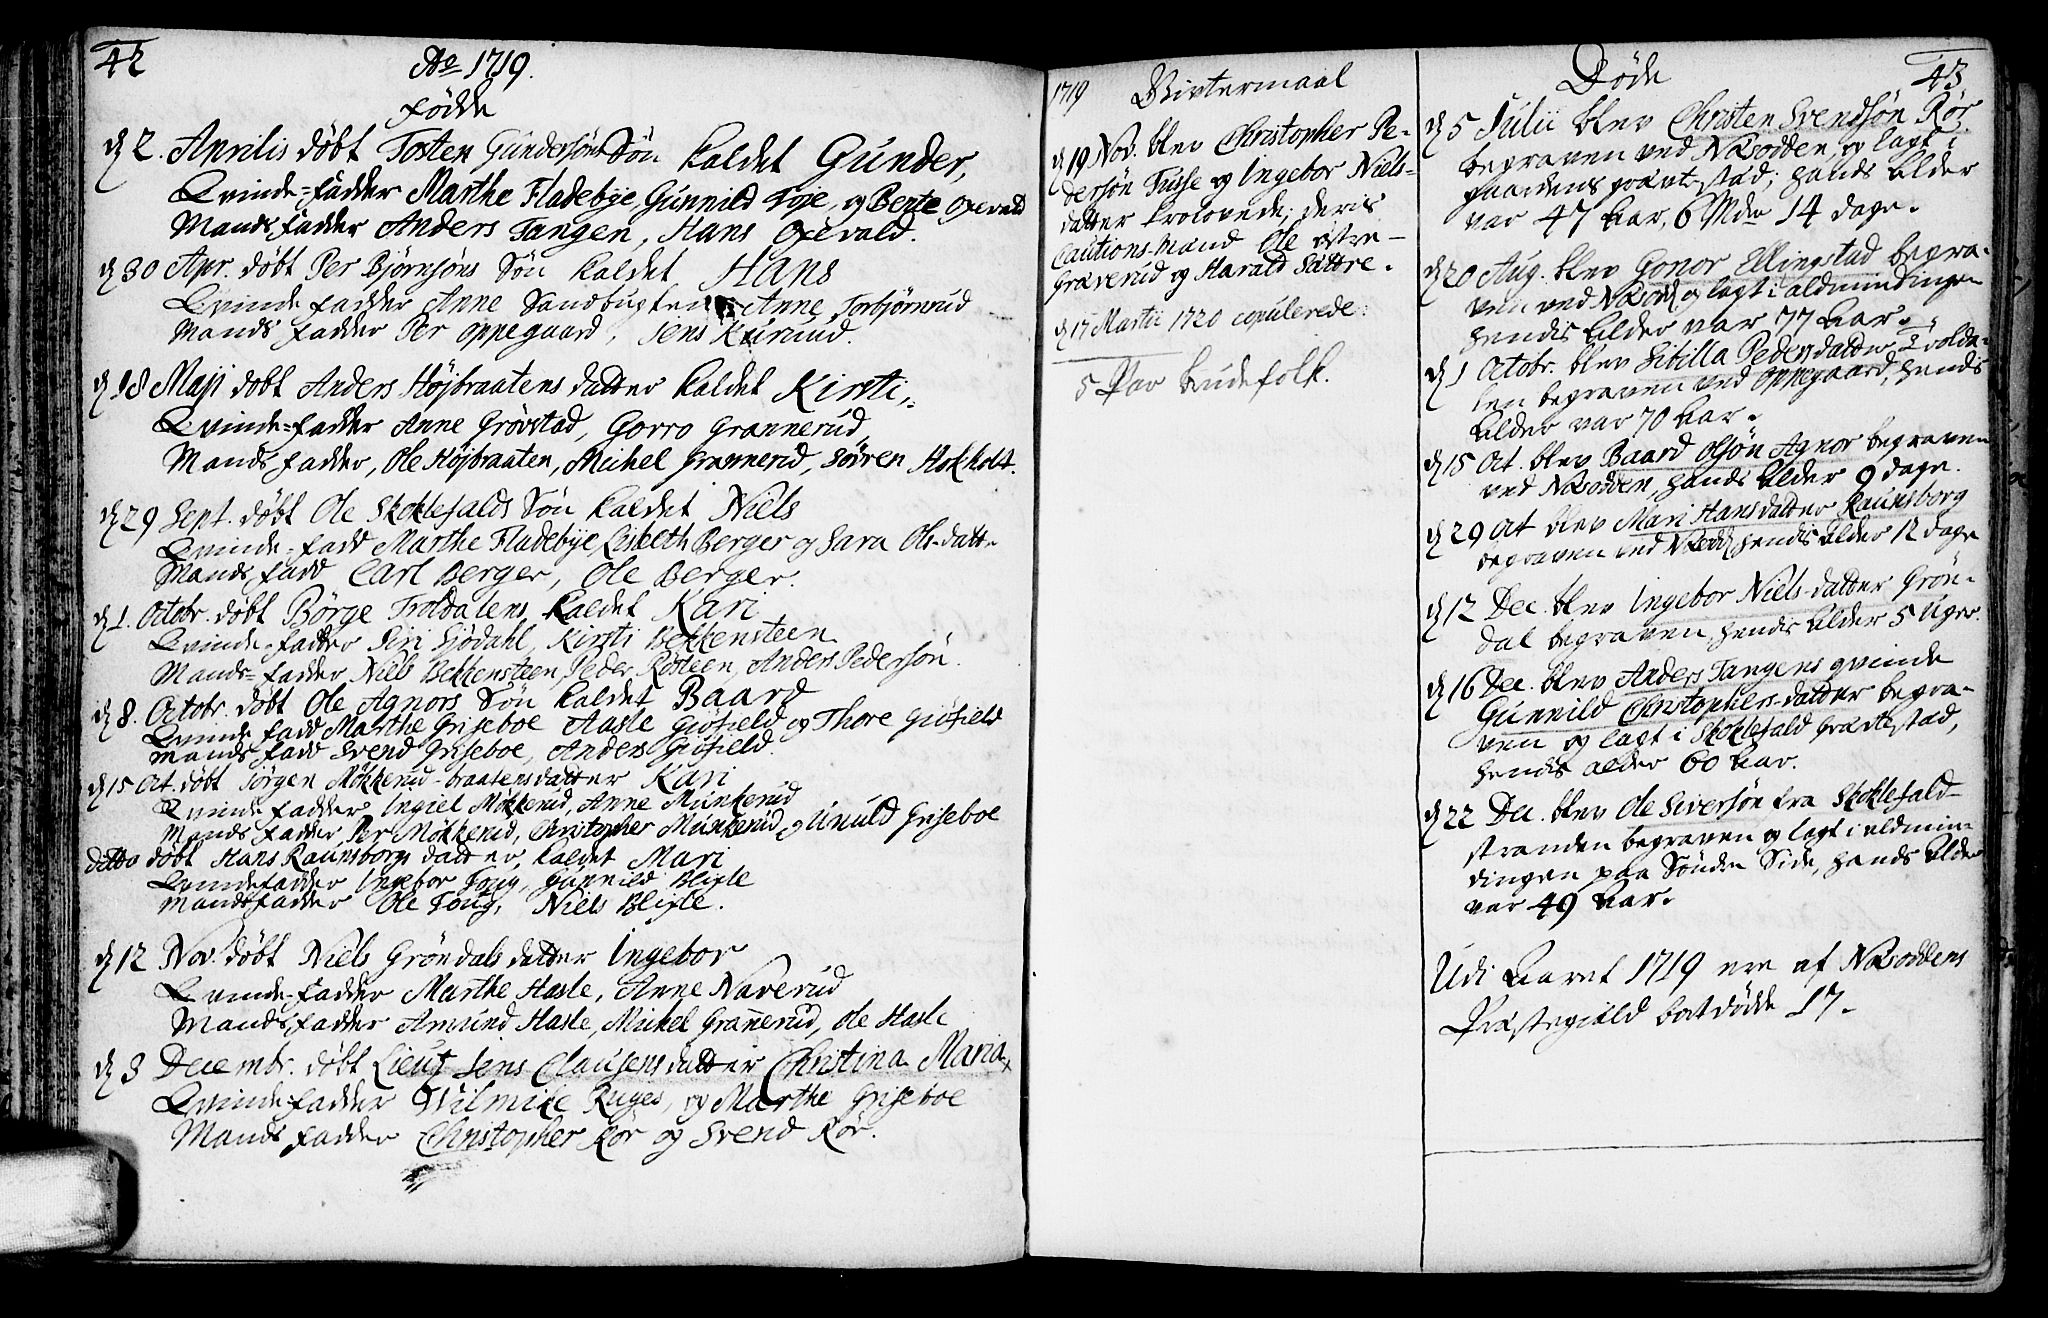 42
Ao 1719.
Fødde
d 2. Aprilis døbt Tosten Gundersøns Søn kaldet Gunder,
Qvinde-Fadder Marthe Fladebye, Gunnild Foje, og Berte Oxevald
Mands Fadder Anders Tangen, Hans Oxevald.
d 30 Apr. døbt Per Bjørnsøns Søn kaldet Hans
Qvinde Fadder Anne Sandbugten Anne Torbjørnrud
Mands Fadder Per Oppegaard, Jens Kurund.
d 18 Maji døbt Anders Højbraatens datter kaldet Kirsti,
Qvinde-Fadder Anne Grøvstad, Gorro Grannerud
Mands Fadder, Ole Højbraaten, Michel Grannerud, Søvren Hokholt.
d 29 Sept. døbt Ole Skoklefalds Søn kaldet Niels
Qvinde-Fadd Marthe Fladebye, Lisbeth Berger og Sara Ols-datt-
Mands Fadd Carl Berger, Ole Berger.
d 1. Octobr. døbt Børge Troldalens kaldet Kari
Qvinde-Fadder Siri Sjødahl, Kirsti Bekkensteen
Mands-Fadder Niels Bekkensteen, Peder Kosteen, Anders Pedersøn.
d 8. Octobr. døbt Ole Agnors Søn kaldet Baard
Qvinde Fadd Marthe Griseboe Aasle Giøfield og Thore Giøfield
Mands Fadd Svend Griseboe, Anders Giøfield.
d 15 Oct. døbt Jørgen Møkkerud-braatens datter Kari
Qvinde Fadder Ingiel Møkkerud, Anne Munkerud
Mands Fadder, Per Møkkerud, Christopher Munkerud og Unuld Griseboe
ditto døbt Hans Raunsborgs datter, kaldet Mari
Qvindefadder Ingebor Toug, Gunnild Blixle
Mandsfadder Ole Toug, Niels Blixle.
d 12 Nov. døbt Niels Grøndals datter Ingebor
Qvinde-Fadder Marthe Hasle, Anne Naverud
Mands Fadder Amund Hasle, Michel Grannerud, Ole Hasle
d 3 Decembr. døbt Lieut Jens Clausens datter Christina Maria
Qvinde-Fadder Wilmike Ruges, og Marthe Griseboe
Mands Fadder Christopher Rør og Svend Rør.
1719 Vivtermaal
d 19 Nov. blev Christopher Pe-
dersøn Tusse og Ingebor Niels-
datter trolovede; deris
Cautions-Mand Ole østre-
Graverud og Harald Sættre.
d 17 Martii 1720 copulerede.
5 Par brudefolk.
Døde
43
d 5 Julii blev Christen Svendsøn Rør
begraven ved Næsodden, og lagt i
gaardens gravested; hands Alder
var 47 Aar, 6 Mdr 14 dage.
d 20 Aug. blev Gonor Ellingstad begra-
ven ved Næsodd og lagt i aldmindingen
hendis Alder var 77 Aar.
d 1 Octobr. blev Sibilla Pedersdatter Trolda-
len begraven ved Oppegaard, hendis
Alder var 70 Aar.
d 15 Oct. blev Baard Olsøn Agnor begraven
ved Næsodden, hands Alder 9 dage.
d 29 Oct blev Mari Hansdatter Raunsborg
begraven ved Næsodd, hendis Alder 12 dage
d 12 Dec. blev Ingebor Niels-datter Grøn-
dal begraven, hendis Alder 5 Uger.
d 16 Dec. blev Anders Tangens qvinde
Gunnild Christophers-datter begra-
ven og lagt i Skoklefald Gravested,
hendis alder 60 Aar.
d 22 Dec. blev Ole Siversøn fra Skoklefald-
stranden begraven og lagt i aldmin-
dingen paa Søndre Side, hands Alder
var 49 Aar.
Udi Aaret 1719 ere af Næsoddens
Præstegield bortdødde 17.